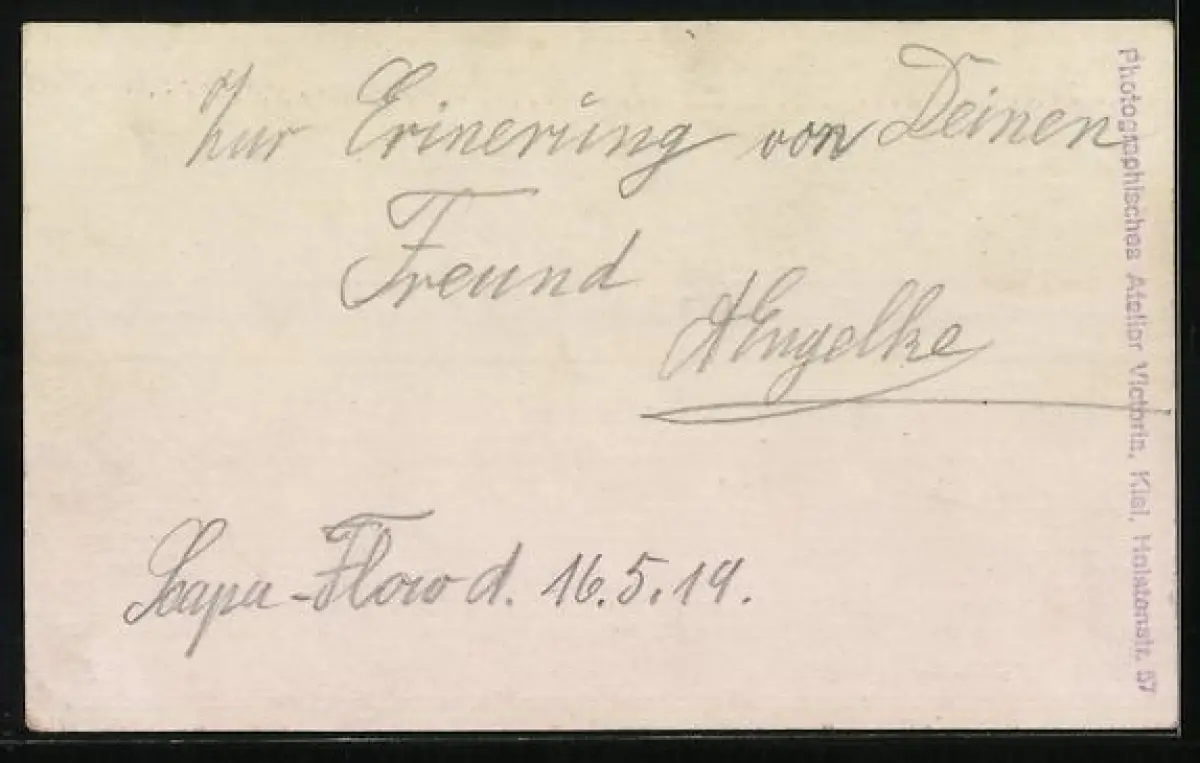 Zur Erinerung von Deinen
Freund
AEngelke
Scapa-Flow d. 16.5.19.
Photographisches Atelier Victoria, Kiel, Holstenstr. 57